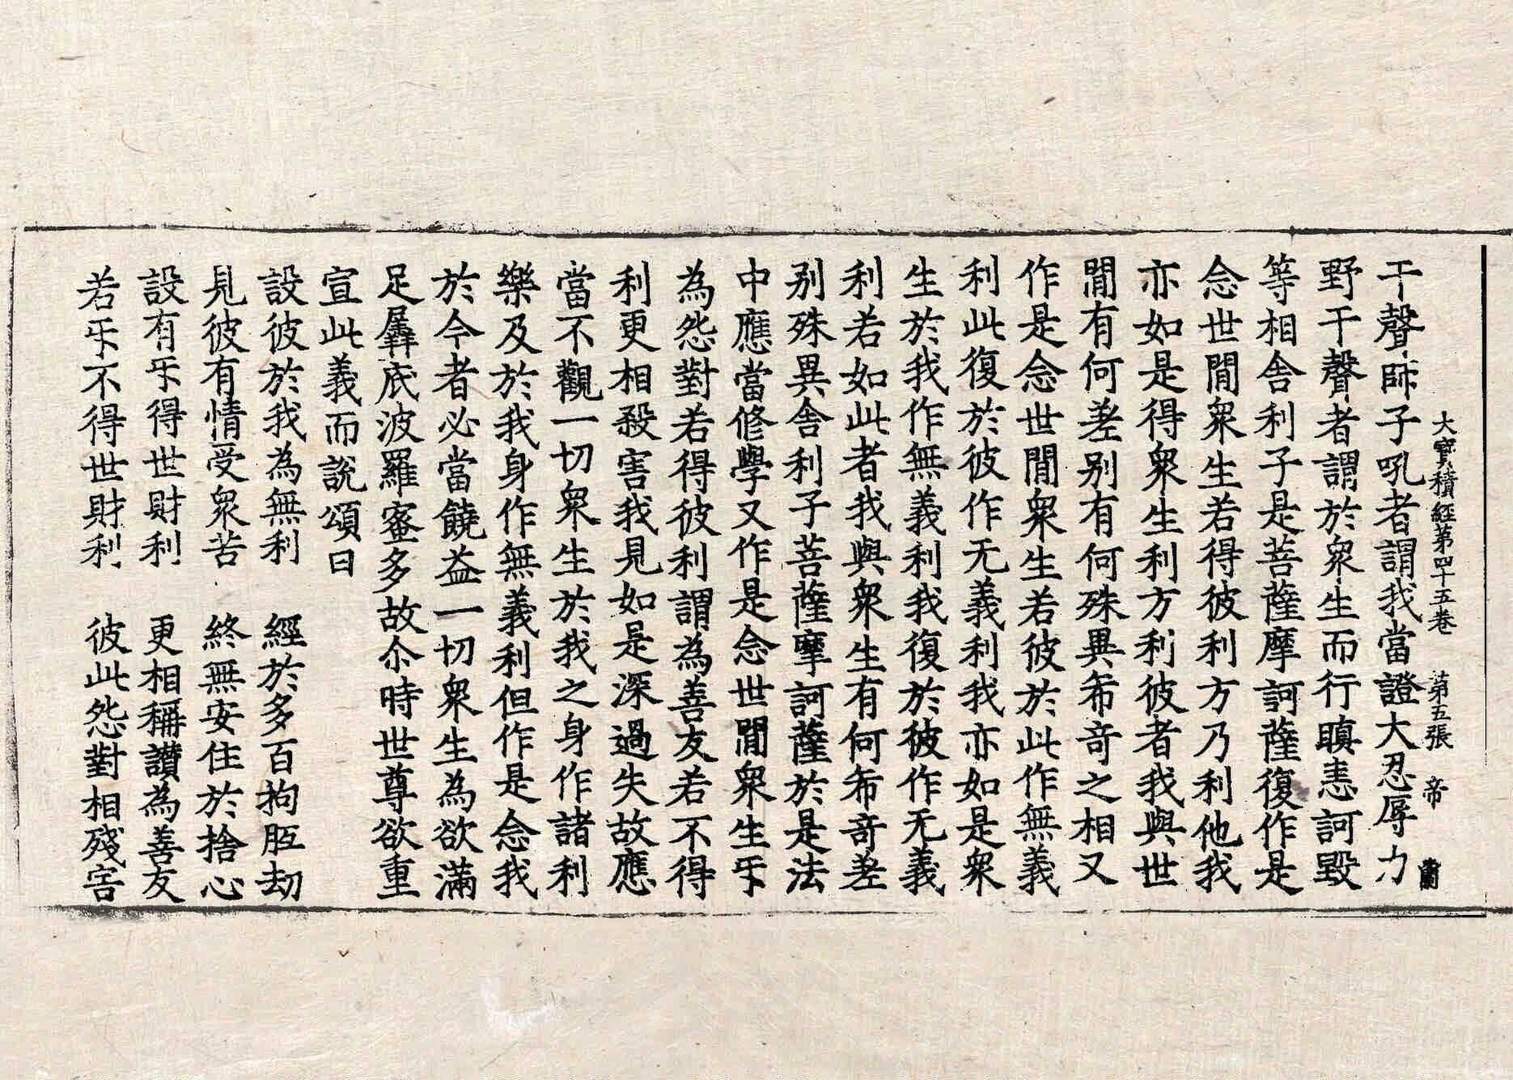 大寶積經第四十五卷　第五張　帝
干聲師子吼者謂我當證大忍辱力
野干聲者謂於衆生而行瞋恚訶毀
等相舍利子是菩薩摩訶薩復作是
念世間衆生若得彼利方乃利他我
亦如是得衆生利方利彼者我與世
間有何差别有何殊異希竒之相又
作是念世間衆生若彼於此作無義
利此復於彼作无義利我亦如是衆
生於我作無義利我復於彼作无義
利若如此者我與衆生有何希竒差
别殊異舍利子菩薩摩訶薩於是法
中應當修學又作是念世間衆生㸦
為怨對若得彼利謂為善友若不得
利更相殺害我見如是深過失故應
當不觀一切衆生於我之身作諸利
樂及於我身作無義利但作是念我
於今者必當饒益一切衆生為欲滿
足羼底波羅蜜多故尒時世尊欲重
宣此義而說頌曰
設彼於我為無利　經於多百拘胝劫
見彼有情受衆苦　終無安住於捨心
設有㸦得世財利　更相稱讚為善友
若㸦不得世財利　彼此怨對相殘害